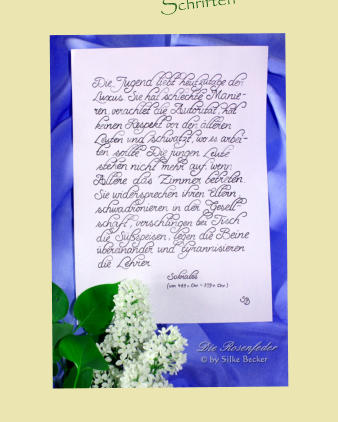 Schriften
Die Jugend liebt heutzutage den
Luxus. Sie hat schlechte Manie-
ren, verachtet die Autorität, hat
keinen Respekt vor den älteren
Leuten und schwatzt, wo sie arbei-
ten sollte. Die jungen Leute
stehen nicht mehr auf, wenn
Ältere das Zimmer betreten.
Sie widersprechen ihren Eltern,
schwadronieren in der Gesell-
schaft, verschlingen bei Tisch
die Süßspeisen, legen die Beine
übereinander und tyrannisieren
die Lehrer.
Sokrates
(um 469 v. Chr - 399 v. Chr.)
SB
Die Rosenfeder
© by Silke Becker